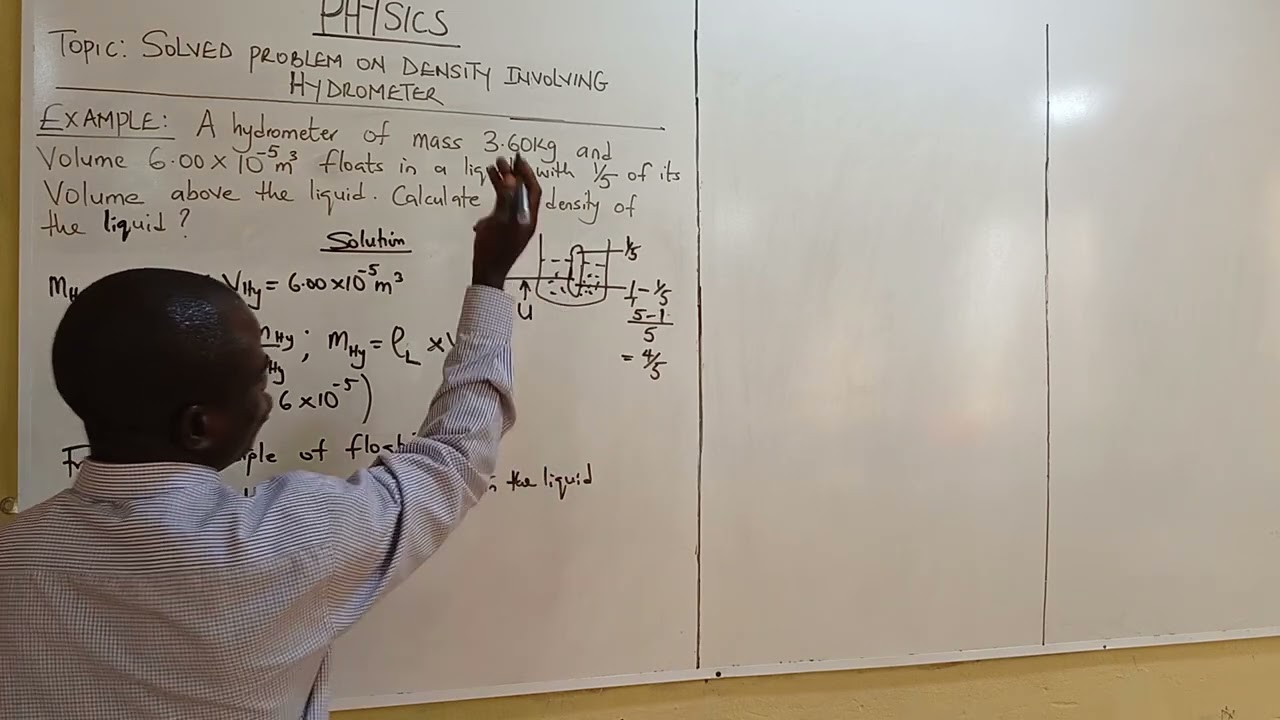 PHYSICS
TOPIC: SOLVED PROBLEM ON DENSITY INVOLVING
HYDROMETER
EXAMPLE: A hydrometer of mass 3.60Kg and
Volume 6.00 × 10⁻⁵m³ floats in a with 1/5 of its
Volume above the liquid. Calculate density of
the liquid?
Solution
V Hy = 6.00 × 10⁻⁵m³
1/5
1/1 - 1/5
5-1
5
= 4/5
U
m Hy ; m Hy = ρL ×
Hy
6 × 10⁻⁵)
of
the liquid